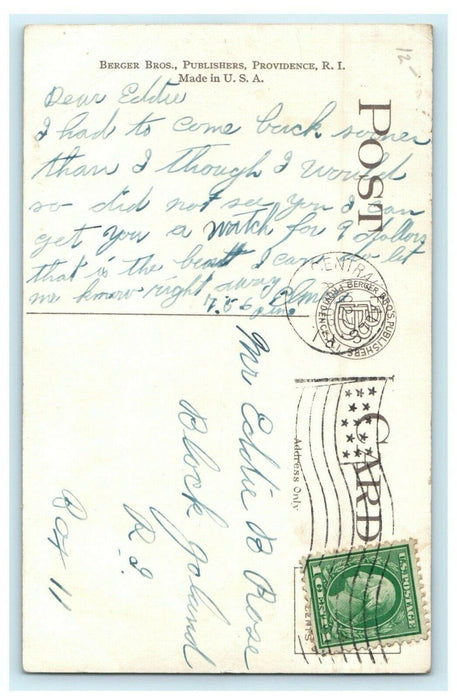 BERGER BROS., PUBLISHERS, PROVIDENCE, R. I.
Made in U. S. A.
12-
Dear Eddie
I had to come back sooner
than I though I would
so did not see you I can
get you a watch for 9 dollars
that is the beatt I can so let
me know right away
Elmer
POST
CARD
Address Only
CENTRAL
BERGER BRO'S PUBLISHERS
PROVIDENCE
Mr Eddie B Rose
Block Island
R I
Box 11
U.S. POSTAGE
1 CENT 1